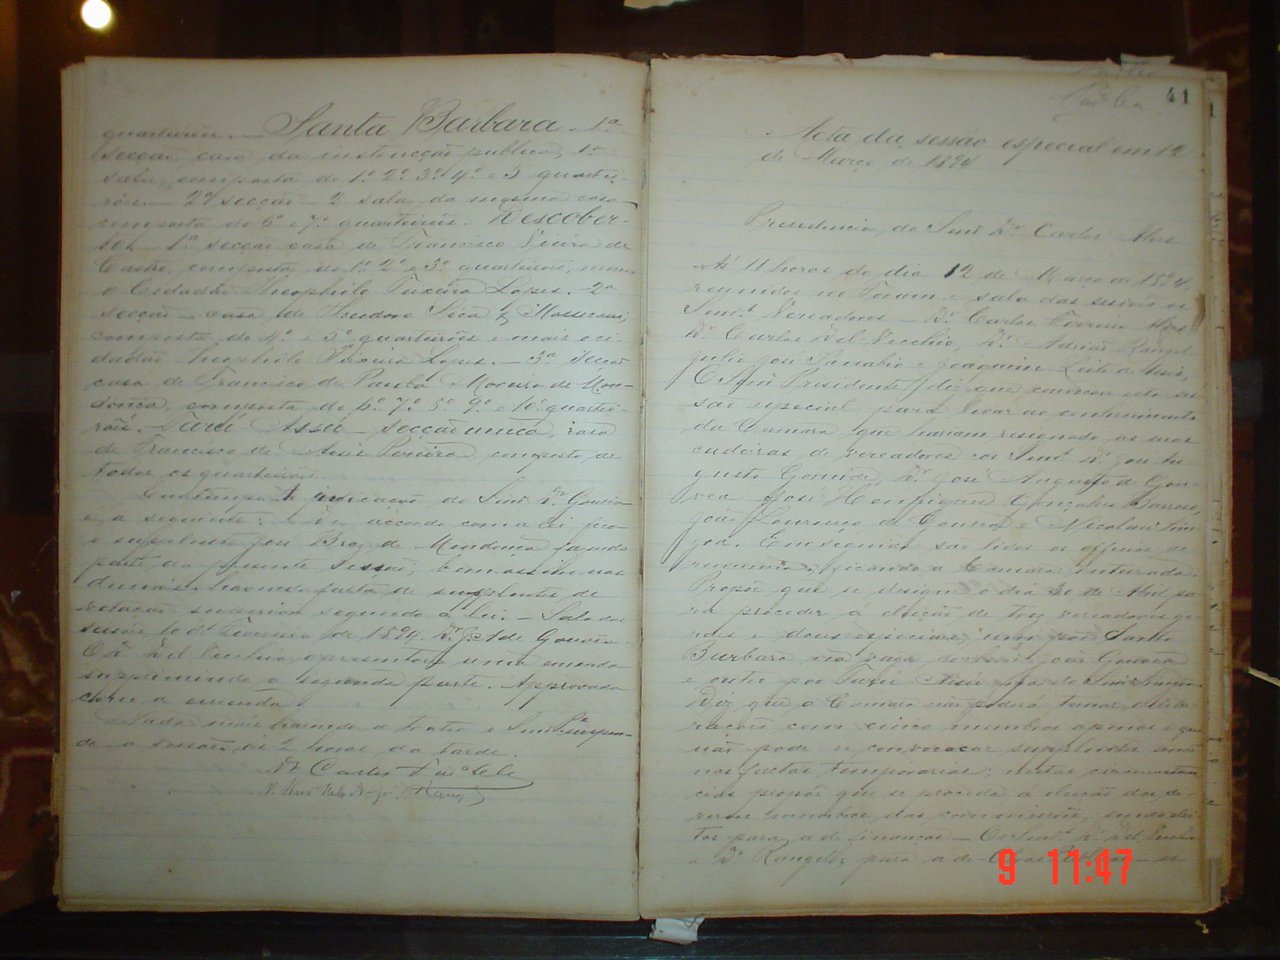 quarteirões. — Santa Barbara — 1ª
secção, casa da instrucção publica, 1ª
sala, composta do 1º 2º 3º 4º e 5 quartei-
rões. — 2ª secção — 2 sala da mesma casa
composta do 6º e 7º quarteirões. Descober-
to. 1ª secção casa de Francisco Vieira de
Castro, composta do 1º 2º e 3º quarteirões,
o Cidadão Theophilo Teixeira Lopes. — 2ª
secção — casa de Theodoro
composta do 4º e 5º quarteirões e mais o ci-
dadão Theophilo Teixeira Lopes. — 3ª Secção
casa de Francisco de Paula Moreira de Men-
donça, composta do 6º 7º 8º 9º e 10º quartei-
rões. Assú — Secção unica, casa
de Francisco de Assis Pereira composta de
todos os quarteirões.
indicação do Senr Dr. Gouvêa
é a seguinte: De accordo com a lei
o supplente José Braz de Mendonça fazendo
parte da presente sessão, bem assim nas
demais havendo falta de supplentes de
votação superior segundo a lei. — Sala das
sessões, 10 de Fevereiro de 1894. Dr. J. A. de Gouvêa.
O Dr. Del Vecchio apresentou uma emenda
supprimindo a segunda parte. Approvada
com a emenda.
Nada mais havendo a tratar o Senr Pte suspen-
de a sessão ás 2 horas da tarde.
Dr Carlos
41
Acta da sessão especial em 12
de Março de 1894
Presidencia do Senr Dr. Carlos Alves
A's 11 horas do dia 12 de Março de 1894,
reunidos no Forum e sala das sessões os
Senrs Vereadores — Dr. Carlos Ferreira Alves
Dr. Carlos Del Vecchio, Dr. Adrião Rangel
Julio José e Joaquim Leite de
O Senr Presidente diz que convocou esta ses-
são especial para levar ao conhecimento
da Camara que haviam resignado as suas
cadeiras de vereadores os Senrs Dr. José Au-
gusto Gomide, Dr. José Augusto de Gou-
vêa, José Henriques Gonçalves
João Lourenço de Gouvêa e Nicolau
Em seguida são lidos os officios de
renuncia, ficando a Camara inteirada.
Propõe que se designe o dia 30 de Abril pa-
ra proceder á eleição de tres vereadores ge-
raes e dous especiaes, um por Santa
Barbara na vaga de João Gouvêa
e outro por Assú
Diz que a Camara não poderá tomar delibe-
rações com cinco membros apenas e que
não pode se convocar supplentes
nas faltas temporarias; nestas circumstan-
cias propõe que se proceda á eleição dos di-
versos membros das commissões, sendo elei-
tos para a de finanças — Os Senrs Dr. Del Vecchio
e Dr. Rangel; para a de Obras Publicas — os
9 11:47